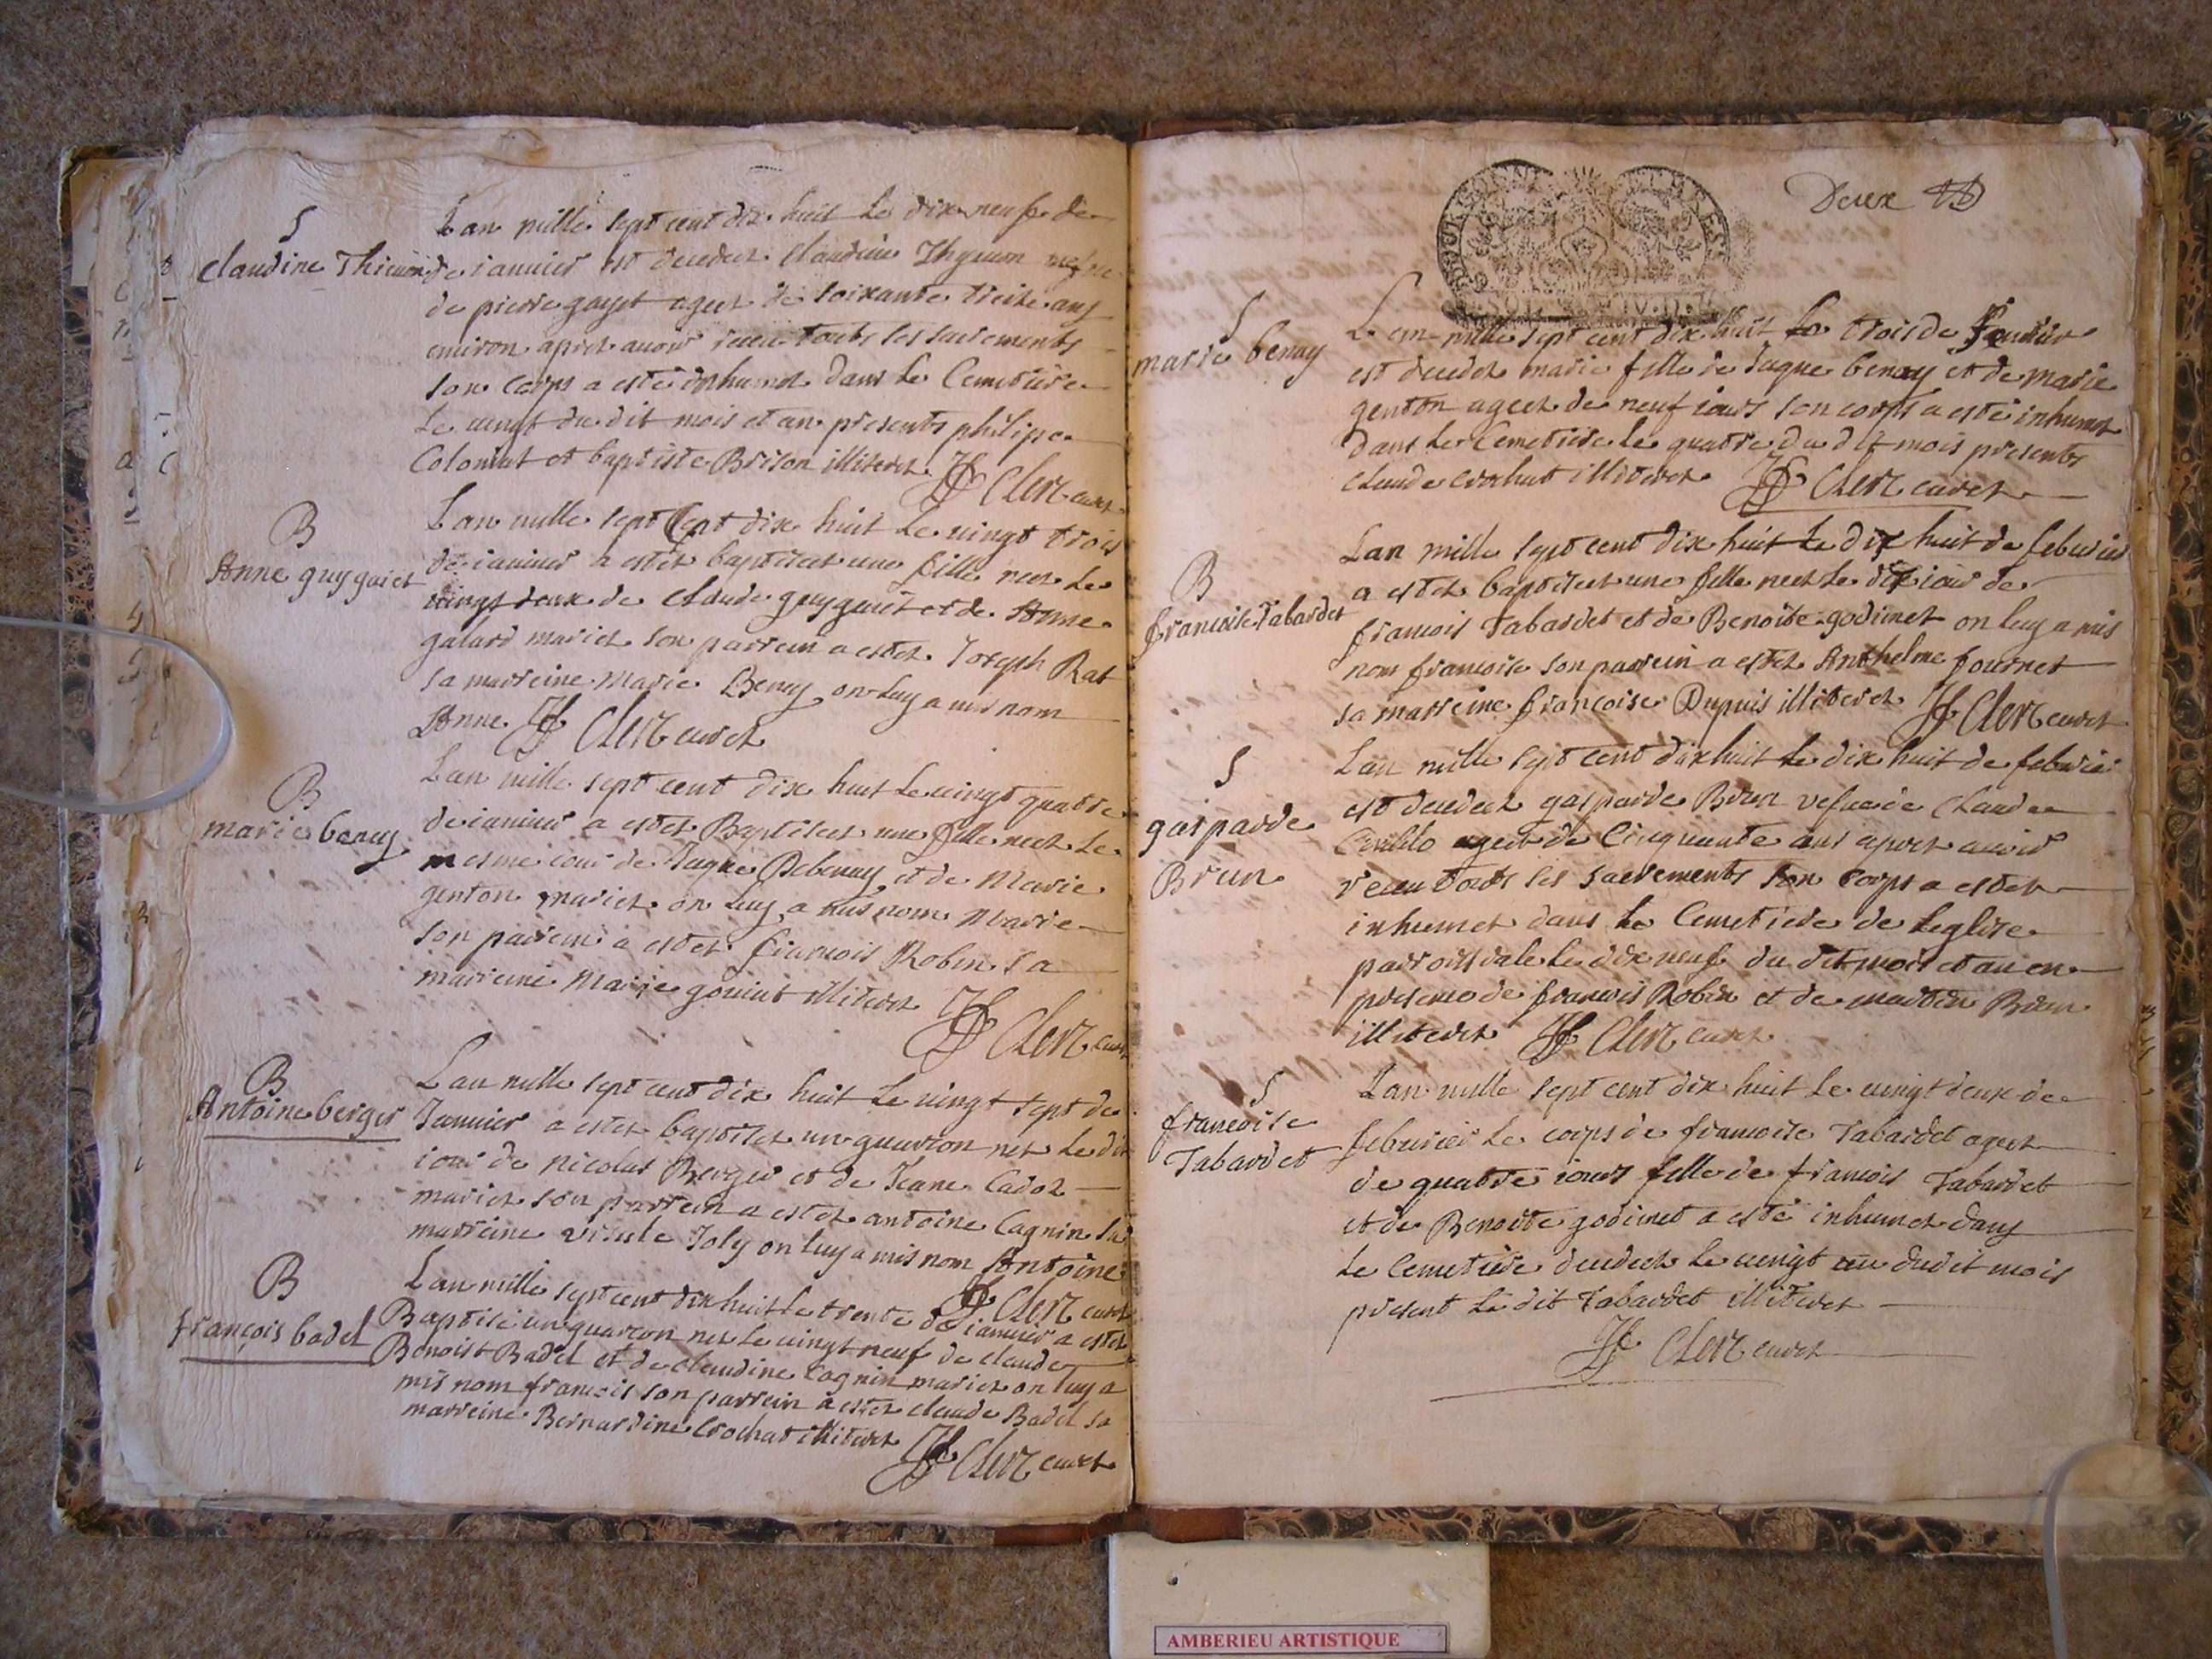 S
Claudine Thieuron
Lan mille sept cent dix huit le dix neufe de
de ianuier est decedeez Claudine Thyuron vefue
de pierre gayet ageez de soixante treize ans
enuiron aprez auoir receu touts les sacrements
son corps a esté inhumez dans le Cemetiere
le uingt du dit mois et an presents philipe
Coloniat et baptiste Brison illiterez JC Clerc curez
B
Anne guygaiet
Lan mille sept Cent dix huit le uingt trois
de ianuier a estez baptiseez une fille neez le
uingt deux de Claude guygaiet et de Anne
galard mariez son parrein a estez Joseph Rat
sa marreine Marie Benay on luy a mis nom
Anne JC Clerc curez
B
marie benay
Lan mille sept cent dix huit le uingt quatre
de ianuier a estez Baptiseez une fille neez le
mesme iour de Jaque Debenay et de Marie
genton mariez on luy a mis nom Marie
son parrein a estez francois Robin sa
marreine Marie illiterez
JC Clerc curez
B
Antoine berger
Lan mille sept cent dix huit le uingt sept de
Januier a estez baptisez un guarcon nez le dit
iour de nicolas Berger et de Jeane Cadoz
mariez son parrein a estez antoine Cagnin sa
marreine ursule Joly on luy a mis nom Antoine
JC Clerc curez
B
françois badel
Lan mille sept cent dix huit le trente de ianuier a estez
Baptisé un guarcon nez le uingt neuf de claude
Benoist Badel et de claudine Cagnin mariez on luy a
mis nom francois son parrein a estez claude Badel sa
marreine Bernardine Crochat illiterez JC Clerc curez
Deux
S
marie benay
Lan mille sept cent dix huit le trois de feurier
est decedez marie fille de Jaque benay et de marie
genton ageez de neuf iours son corps a esté inhumez
dans le Cemetiere le quatre du dit mois presents
claude crochat illiterez JC Clerc curez
B
francoise Tabardet
Lan mille sept cent dix huit le dix huit de feburier
a estez baptiseez une fille neez le dit iour de
francois Tabardet et de Benoite godimet on luy a mis
nom francoise son parrein a estez Anthelme fournet
sa marreine francoise Dupuis illiterez JC Clerc curez
S
gasparde
Brun
Lan mille sept cent dix huit le dix huit de feburier
est decedeez gasparde Brun vefue de Claude
ageez de Cinquante ans aprez auoir
receu touts les sacrements son corps a estez
inhumez dans le Cemetiere de leglise
parroissiale le dix neuf du dit mois et an en
presence de francois Robin et de martin Brun
illiterez JC Clerc curez
S
francoise
Tabardet
Lan mille sept cent dix huit le uingt deux de
feburier le corps de francoise Tabardet ageez
de quatre iours fille de francois Tabardet
et de Benoite godimet a esté inhumez dans
le Cemetiere decedeez le uingt un dudit mois
present le dit Tabardet illiterez
JC Clerc curez
AMBERIEU ARTISTIQUE